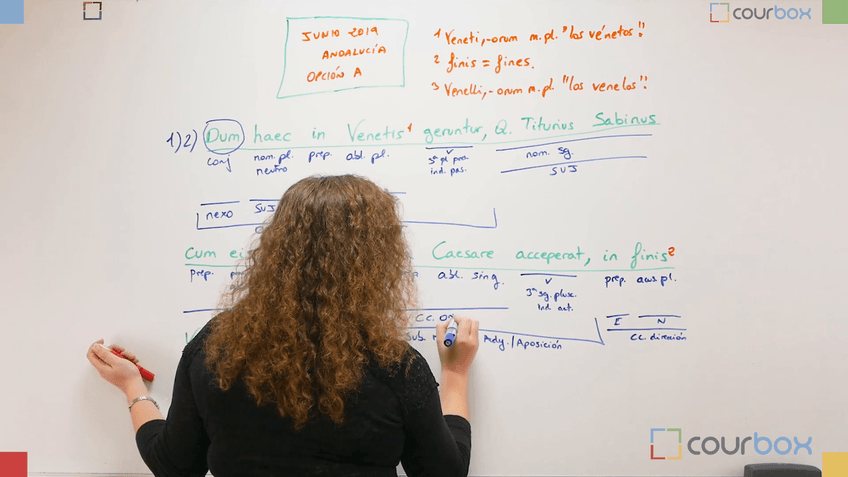 courbox
JUNIO 2019
ANDALUCÍA
OPCIÓN A
1 Veneti, -orum m. pl. "los vénetos"!
2 finis = fines.
3 Venelli, -orum m. pl. "los venelos"!
1) 2) Dum haec in Venetis¹ geruntur, Q. Titurius Sabinus
conj nom. pl. prep. abl. pl. 3ª pl pre. nom. sg.
neutro ind. pas. SUJ
nexo SUJ
Cum Caesare acceperat, in finis²
prep. abl. sing. V prep. acus. pl.
3ª sg. plusc.
ind. act.
CC. E N
Sub. Adj./Aposición CC. dirección
courbox